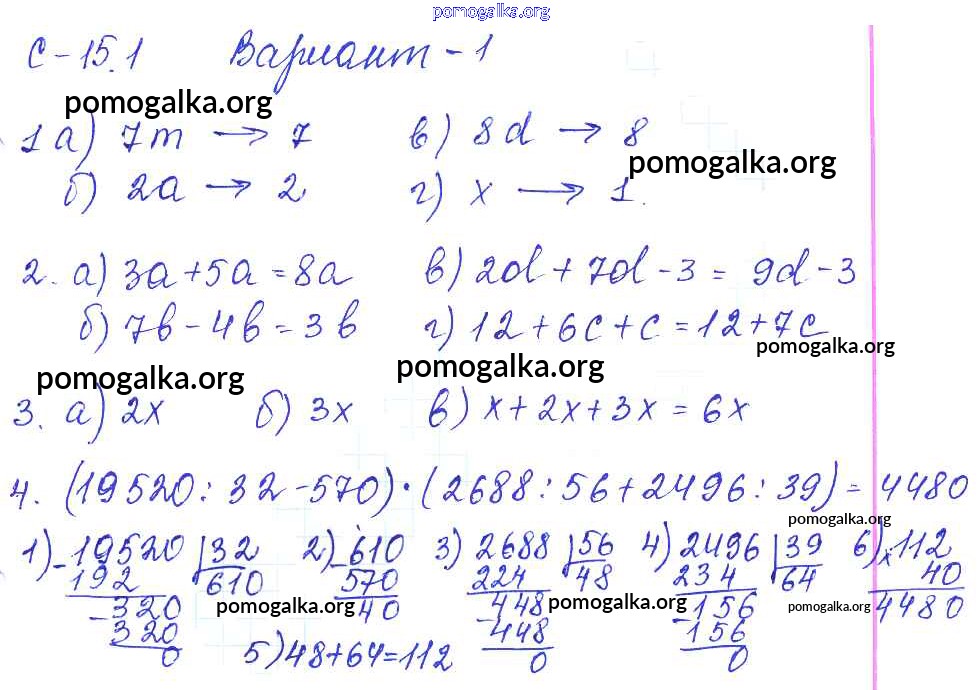 pomogalka.org
С-15.1 Вариант-1
pomogalka.org
1 а) 7m → 7 в) 8d → 8
pomogalka.org
б) 2a → 2 г) x → 1.
2. а) 3a+5a=8a в) 2d+7d-3=9d-3
б) 7b-4b=3b г) 12+6c+c=12+7c
pomogalka.org
pomogalka.org pomogalka.org
3. а) 2x б) 3x в) x+2x+3x=6x
4. (19520:32-570)·(2688:56+2496:39)=4480
pomogalka.org
1) -19520 32 2) -610 3) 2688 56 4) 2496 39 6) x112
192 610 570 224 48 234 64 40
-320 40 -448 -156 4480
pomogalka.org pomogalka.org pomogalka.org
320 448 156
0 5) 48+64=112 0 0